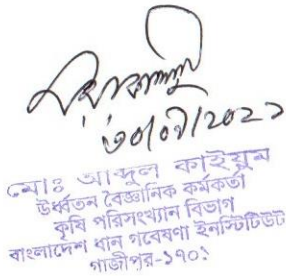 ৩০/০৬/২০২১
মোঃ আব্দুল কাইয়ুম
উর্ধ্বতন বৈজ্ঞানিক কর্মকর্তা
কৃষি পরিসংখ্যান বিভাগ
বাংলাদেশ ধান গবেষণা ইনস্টিটিউট
গাজীপুর-১৭০১